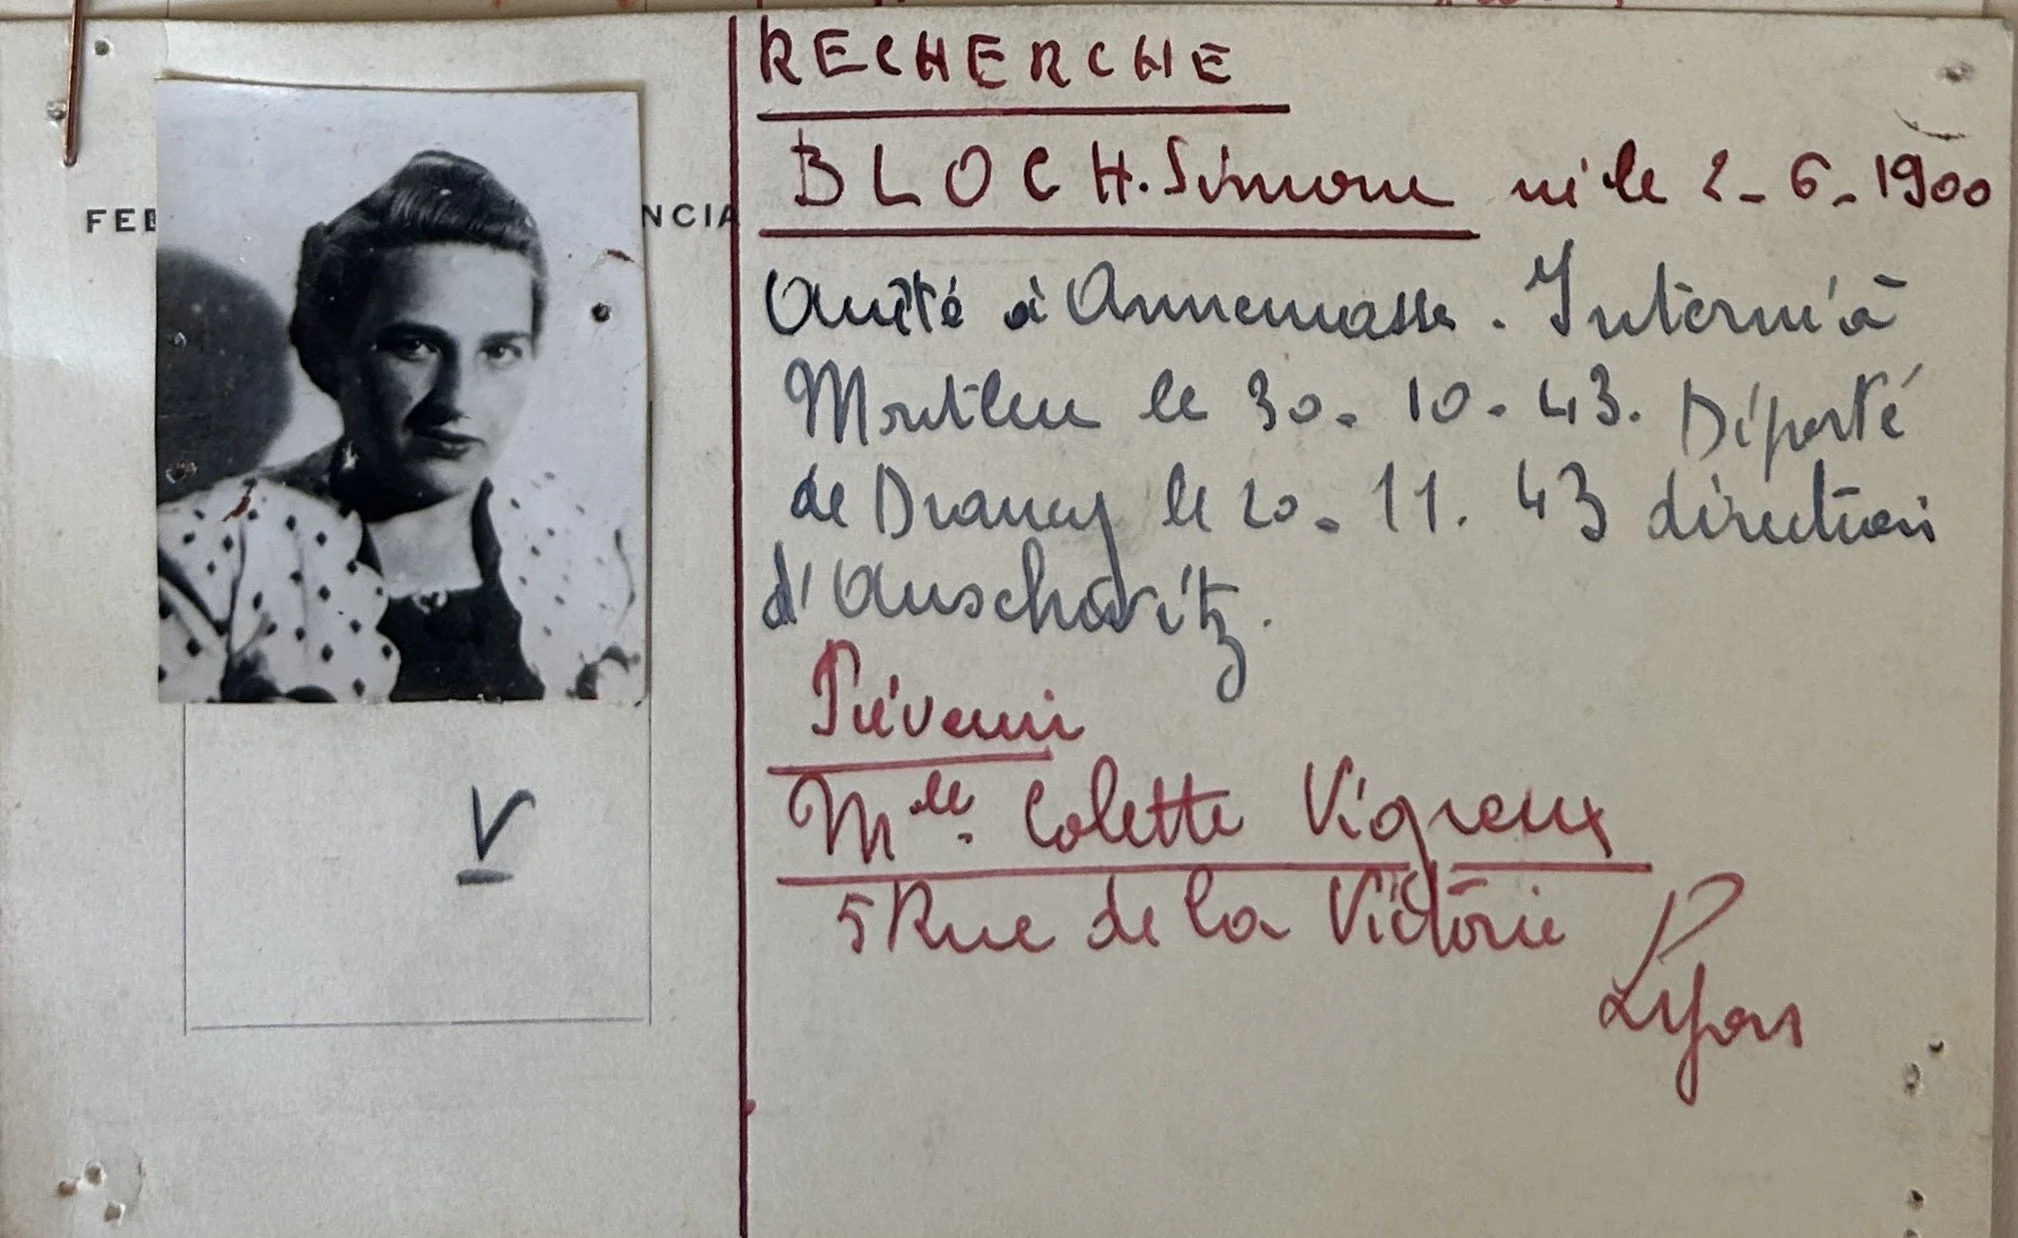 FED NCIA
RECHERCHE
BLOCH. Simone né le 2-6-1900
Arrêté à Annemasse. Interné à
Montluc le 30-10-43. Déporté
de Drancy le 20-11.43 direction
d'Auschwitz.
Prévenir
Mlle. Colette Vigreux
5 Rue de la Victoire
Lyon
V